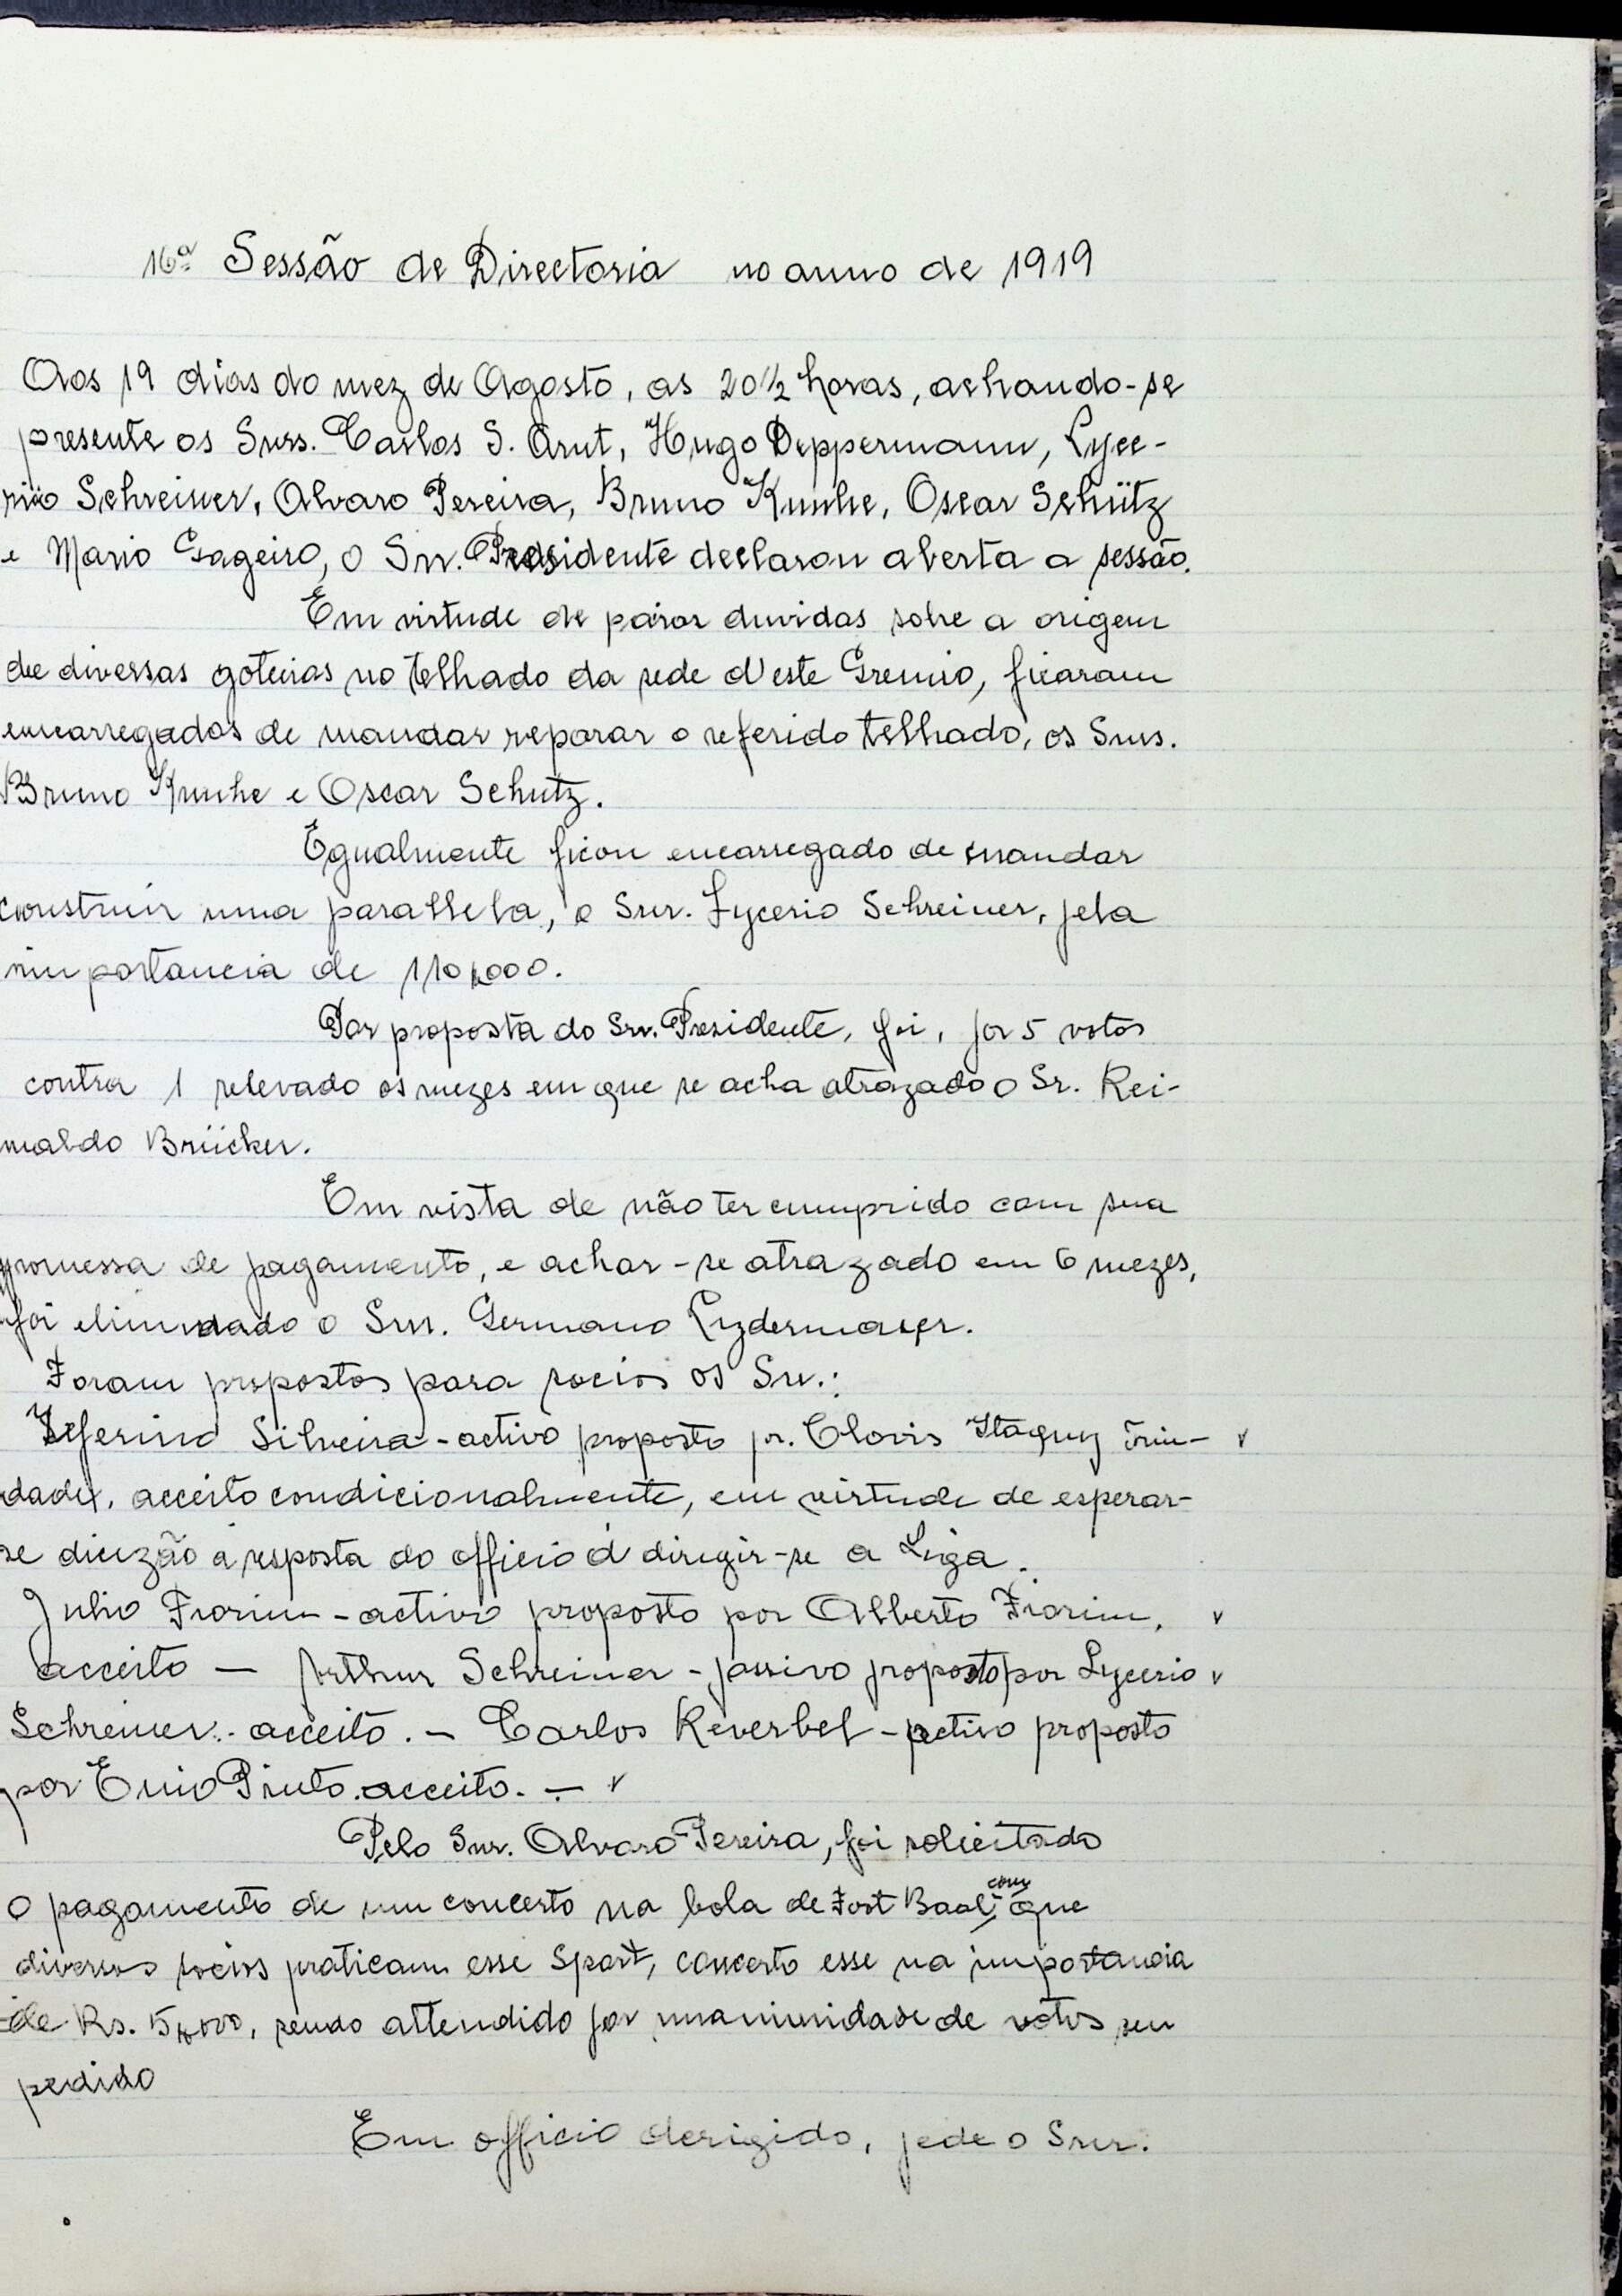 16ª Sessão de Directoria no anno de 1919
Aos 19 dias do mez de Agosto, as 20½ horas, achando-se
presente os Snrs. Carlos S. Arnt, Hugo Deppermann, Lyce-
rio Schreiner, Alvaro Pereira, Bruno Kunhe, Oscar Schütz
e Mario Gageiro, o Snr. Presidente declarou aberta a sessão.
Em virtude de pairar duvidas sobre a origem
de diversas goteiras no telhado da sede d'este Gremio, ficaram
encarregados de mandar reparar o referido telhado, os Snrs.
Bruno Kunhe e Oscar Schutz.
Egualmente ficou encarregado de mandar
construir uma parallela, o Snr. Lycerio Schreiner, pela
importancia de 110$000.
Por proposta do Snr. Presidente, foi, por 5 votos
contra 1 relevado os mezes em que se acha atrazado o Sr. Rei-
naldo Brücker.
Em vista de não ter cumprido com sua
promessa de pagamento, e achar-se atrazado em 6 mezes,
foi eliminado o Snr. Germano
Foram propostos para socios os Snr.:
Zeferino Silveira - activo proposto pr. Clovis Itaquy Trin-
dade, acceito condicionalmente, em virtude de esperar-
se dicizão a resposta do officio á dirigir-se a Liga.
Julio Fiorim - activo proposto por Alberto Fiorim,
acceito — Arthur Schreiner - passivo proposto por Lycerio
Schreiner. - acceito. - Carlos Reverbel - activo proposto
por Enio Pinto. acceito. -
Pelo Snr. Alvaro Pereira, foi solicitado
o pagamento de um concerto na bola de Foot Baal, com que
diversos socios praticam esse Sport, concerto esse na importancia
de Rs. 5$000, sendo attendido por unanimidade de votos seu
pedido
Em officio derigido, pede o Snr.